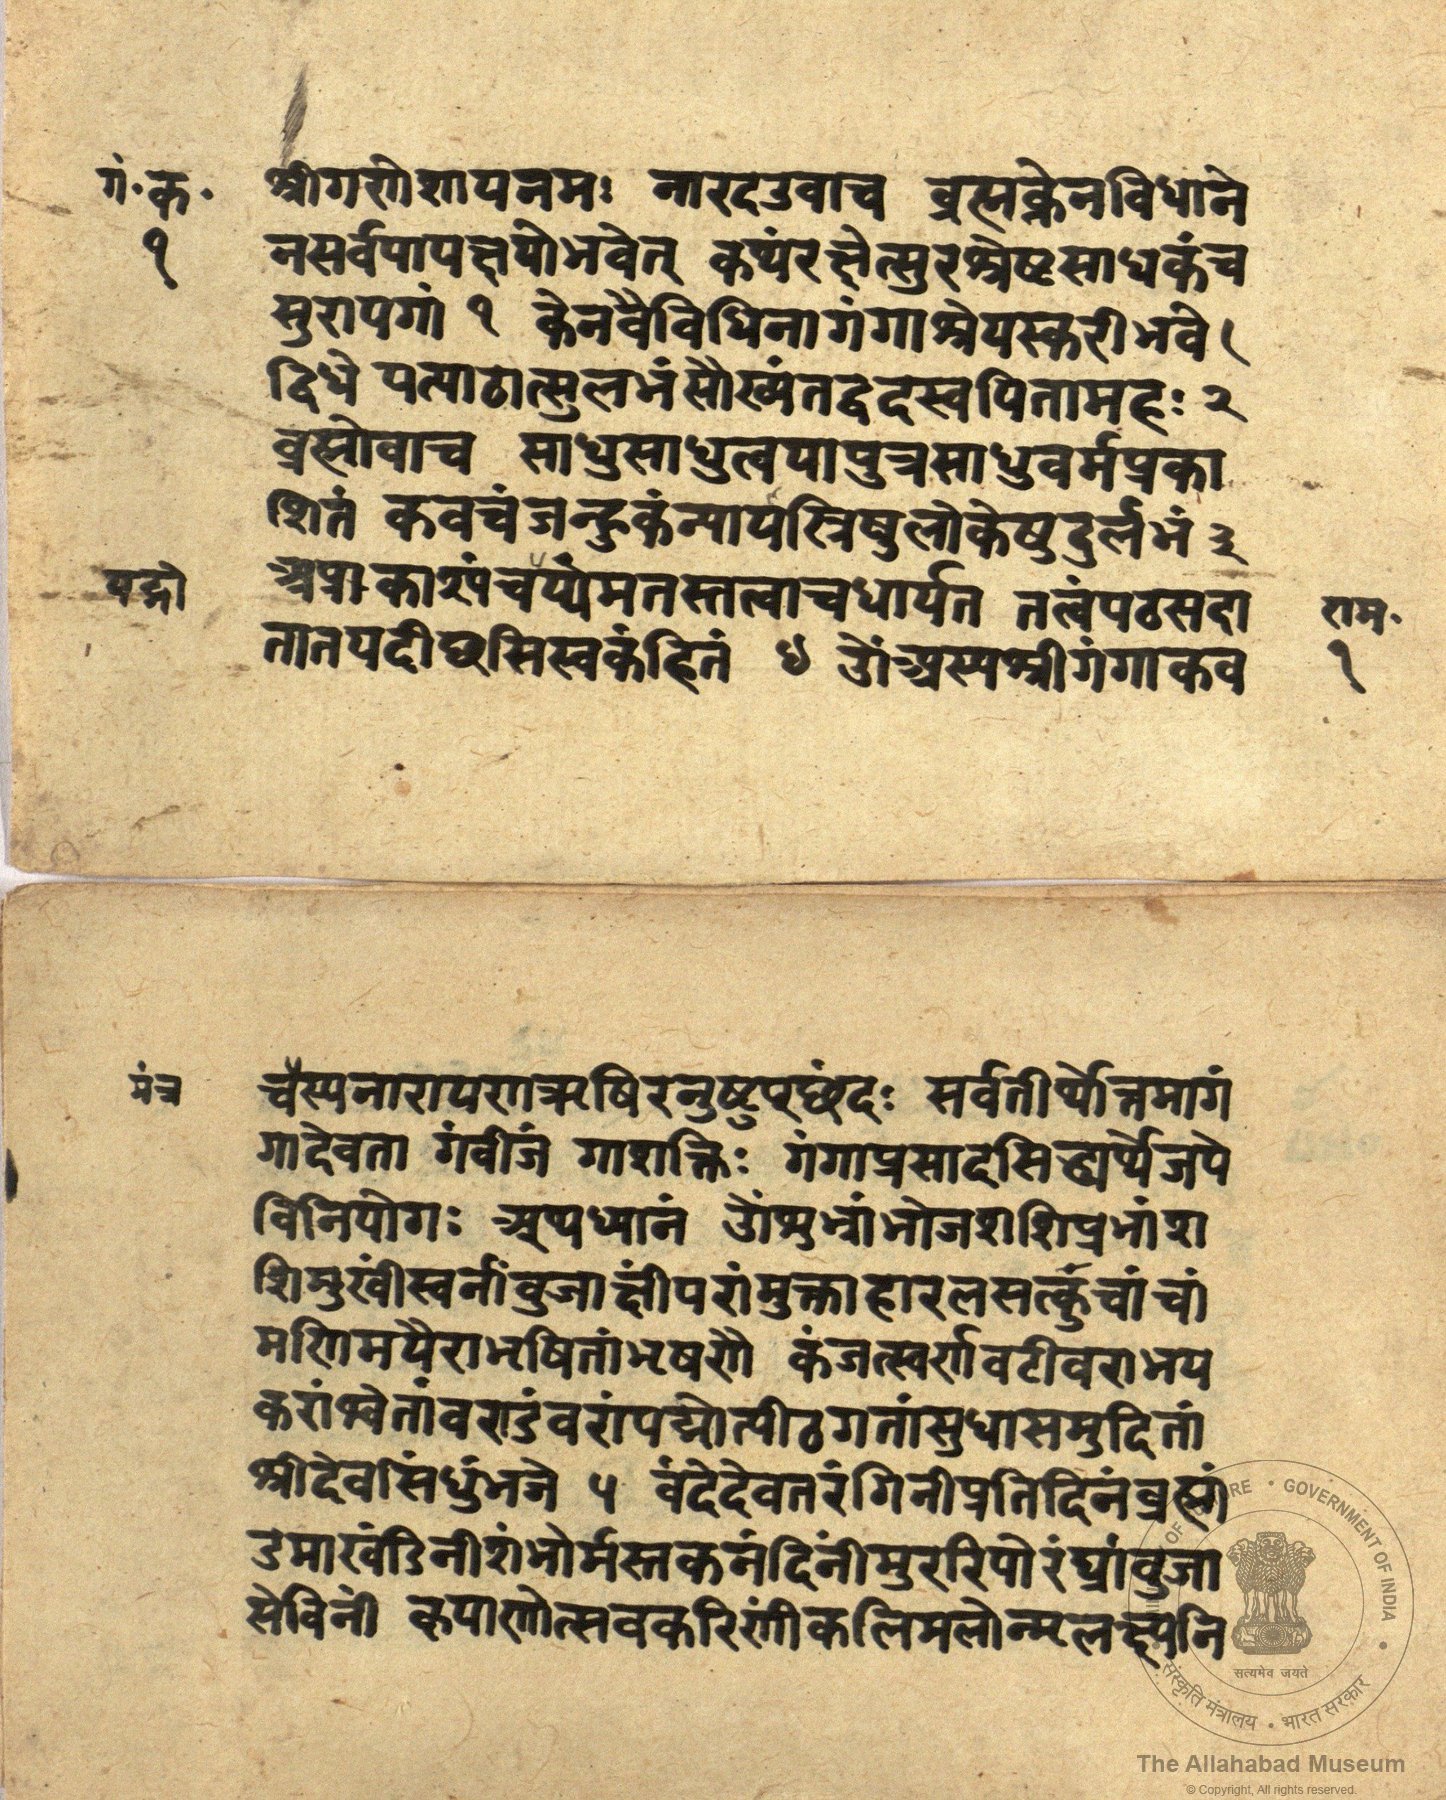 गं॰क॰
१
श्रीगणेशायनमः नारदउवाच ब्रह्मन्केनविधाने
नसर्वपापक्षयोभवेत् कथंरक्षेत्सुरश्रेष्टसाधकंच
सुरापगां १ केनवैविधिनागंगाश्रेयस्करीभवे
द्विधे यत्पाठात्सुलभंसौख्यंतद्वदस्वपितामहः २
ब्रह्मोवाच साधुसाधुत्वयापुत्रसाधुवर्मप्रका
शितं कवचंजन्हुकंन्यायस्त्रिषुलोकेषुदुर्लभं ३
यद्गो
अप्राकाश्यं मतस्तत्वाचधार्यत तत्वंपठसदा
तातयदीछसिस्वकंहितं ४ ॐअस्यश्रीगंगाकव
राम॰
१
मंत्र
चस्यनारायणऋषिरनुष्टुप्छंदः सर्वतीर्थोत्तमागं
गादेवता गंवीजं गाशक्तिः गंगाप्रसादसिद्ध्यर्थेजपे
विनियोगः अथध्यानं ॐशुभ्रांभोजशशिप्रभांश
शिमुखींस्वर्नांवुजाक्षींपरांमुक्ताहारलसत्कुचांचां
मणिमयैराभषितांभषणै कंजत्स्वर्णवटीवराभय
करांश्वेतांवराडंवरांपद्मोत्पीठगतांसुधासमुदितां
श्रीदेवसिंधुंभजे ५ वंदेदेवतरंगिनीप्रतिदिनंब्रह्मां
डमाखंडिनीशंभोर्मस्तकनंदिनींमुररिपोरंघ्रांवुजा
सेविनीं कृपाणोत्सवकरिणींकलिमलोन्मल
संस्कृति मंत्रालय • भारत सरकार
GOVERNMENT OF INDIA
सत्यमेव जयते
The Allahabad Museum
© Copyright, All rights reserved.